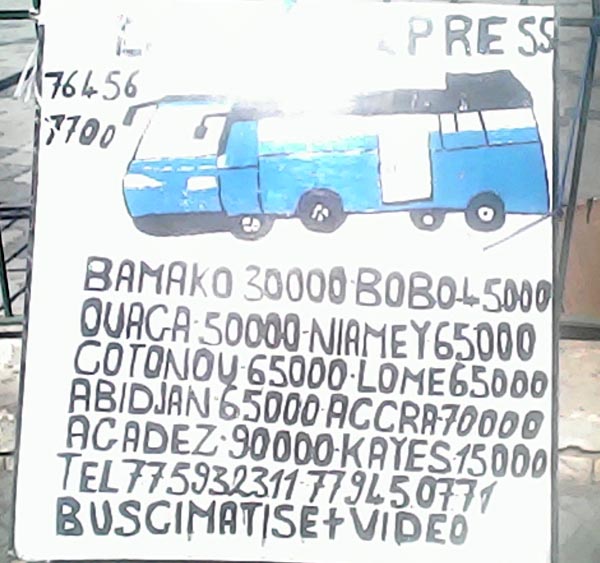 PRESS
76456
7700
BAMAKO 30000·BOBO-45000
OUAGA·50000-NIAMEY65000
COTONOU·65000·LOME65000
ABIDJAN65000·ACCRA70000
AGADEZ·90000·KAYES15000
TEL775932311 779450771
BUSCIMATISE+VIDEO